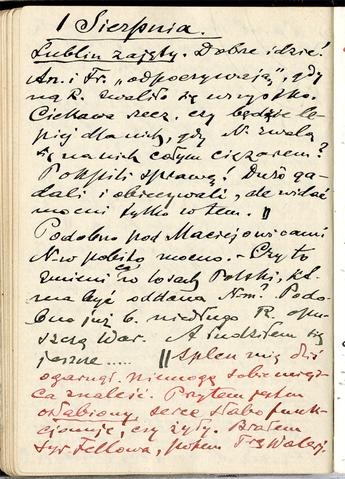 1 Sierpnia.
Lublin zajęty. Dobrze idzie!
An. i Fr. „odpoczywają", gdy
na R. zwaliło się wszystko.
Ciekawa rzecz, czy będzie le-
piej dla nich, gdy N. zwalą
się na nich całym ciężarem?
Pokpili sprawę! Dużo ga-
dali i obiecywali, ale widać
mocni tylko w tem. ||
Podobno pod Maciejowicami
N-w pobito mocno. - Czy to
zmieni co w losach Polski, kt.
ma być oddana N-m? Podo-
bno już b. niedługo R. opu-
szczą War. A łudziłem się
jeszcze ..... || Splen mię dziś
ogarnął. Niemogę sobie miejs-
ca znaleźć. Przytem jestem
osłabiony, serce słabo funk-
cjonuje, czy żyły. Brałem
Syr. Fellowa, potem Walerj.